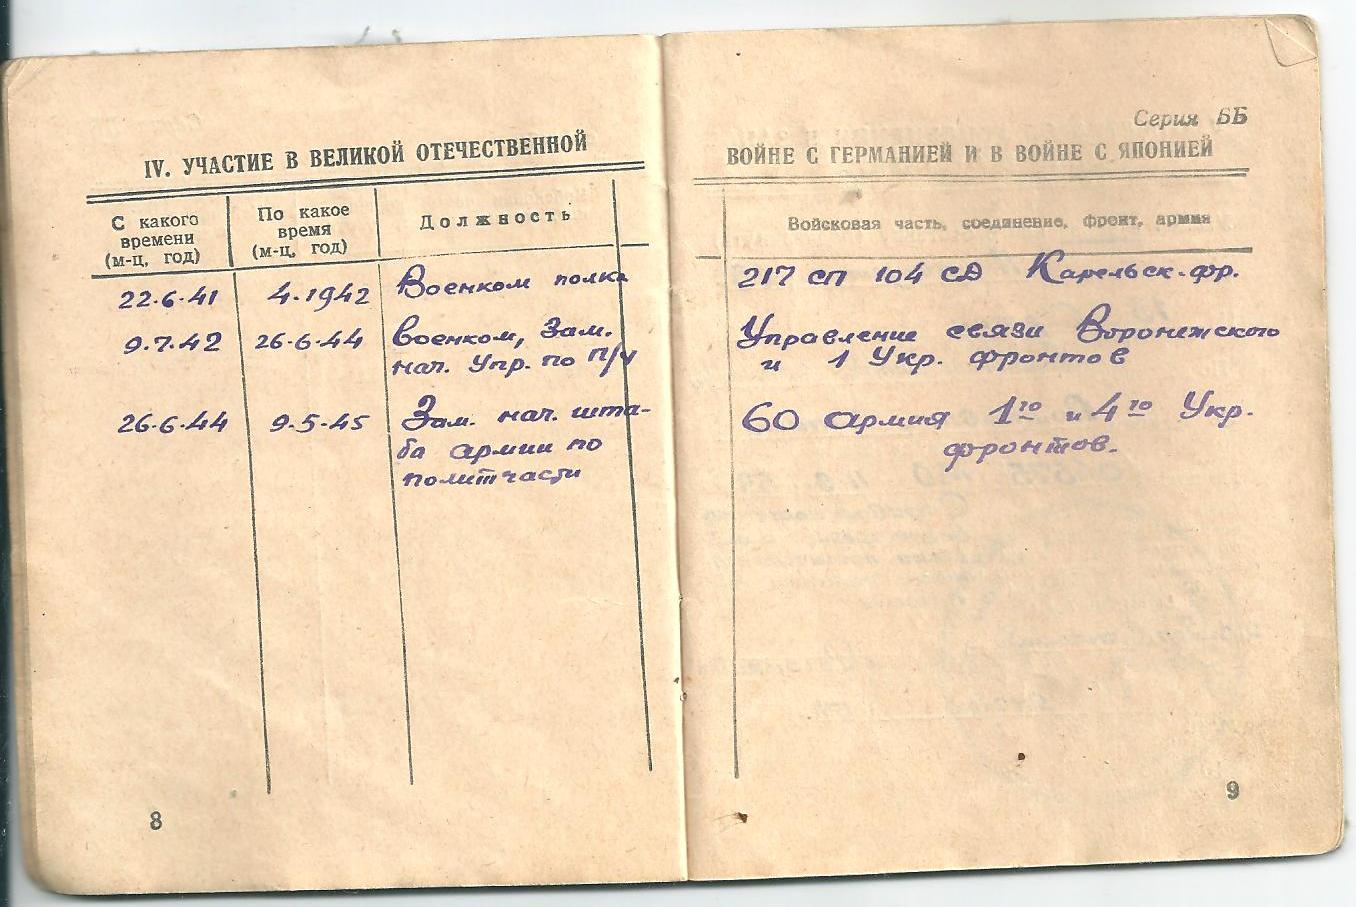 IV. УЧАСТИЕ В ВЕЛИКОЙ ОТЕЧЕСТВЕННОЙ
С какого времени (м-ц, год)
По какое время (м-ц, год)
Должность
22·6·41 4·1942 Военком полка
9.7.42 26·6·44 военком, Зам.
нач. Упр. по п/ч
26·6·44 9·5·45 Зам. нач. шта-
ба армии по
политчасти
8
Серия ББ
ВОЙНЕ С ГЕРМАНИЕЙ И В ВОЙНЕ С ЯПОНИЕЙ
Войсковая часть, соединение, фронт, армия
217 сп 104 сд Карельск. фр.
Управление связи Воронежского
и 1 Укр. фронтов
60 армия 1го и 4го Укр.
фронтов.
9